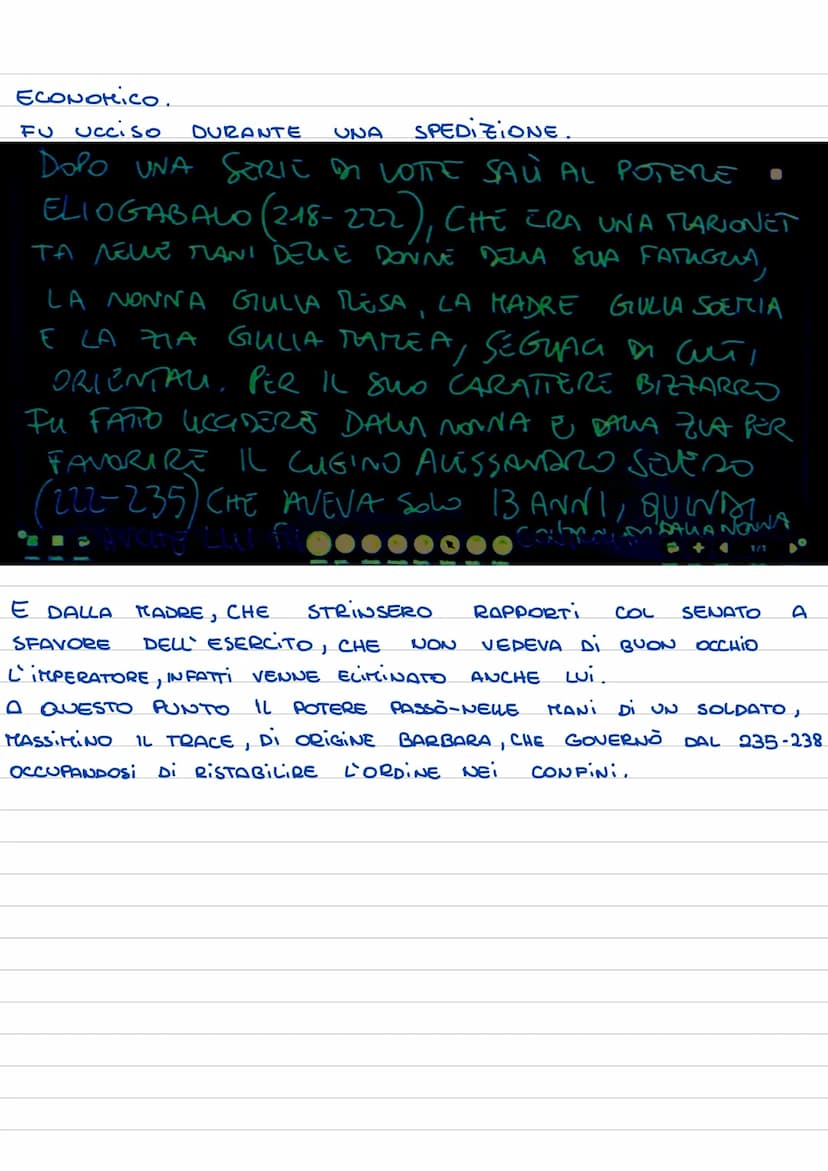 ECONOMICO.
FU UCCISO DURANTE UNA SPEDIZIONE.
DOPO UNA SERIE DI LOTTE SALÌ AL POTERE
ELIOGABALO (218-222), CHE ERA UNA MARIONET
TA NELLE MANI DELLE DONNE DELLA SUA FAMIGLIA,
LA NONNA GIULIA MESA, LA MADRE GIULIA SOEMIA
E LA ZIA GIULIA MAMEA, SEGUACI DI CULTI
ORIENTALI. PER IL SUO CARATTERE BIZZARRO
FU FATTO UCCIDERE DALLA NONNA E DALLA ZIA PER
FAVORIRE IL CUGINO ALESSANDRO SEVERO
(222-235) CHE AVEVA SOLO 13 ANNI, QUINDI
ANCHE LUI DALLA NONNA
1/1
E DALLA MADRE, CHE STRINSERO RAPPORTI COL SENATO A
SFAVORE DELL'ESERCITO, CHE NON VEDEVA DI BUON OCCHIO
L'IMPERATORE, INFATTI VENNE ELIMINATO ANCHE LUI.
A QUESTO PUNTO IL POTERE PASSÒ NELLE MANI DI UN SOLDATO,
MASSIMINO IL TRACE, DI ORIGINE BARBARA, CHE GOVERNÒ DAL 235-238
OCCUPANDOSI DI RISTABILIRE L'ORDINE NEI CONFINI.